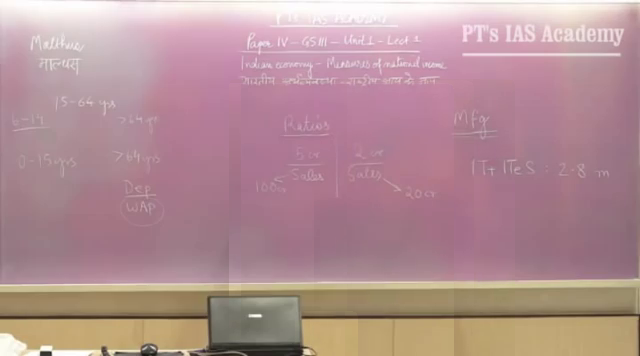 PT's IAS Academy
PT's IAS Academy
Paper IV - GS III - Unit 1 - Lect 1
Indian economy - Measures of national income
भारतीय अर्थव्यवस्था - राष्ट्रीय आय के माप
Malthus
माल्थस
15-64 yrs
0-15 yrs
>64 yrs
Dep
WAP
Ratios
5 cr
Sales
100cr
2 cr
Sales
20cr
Mfg
IT+ ITeS : 2.8 m